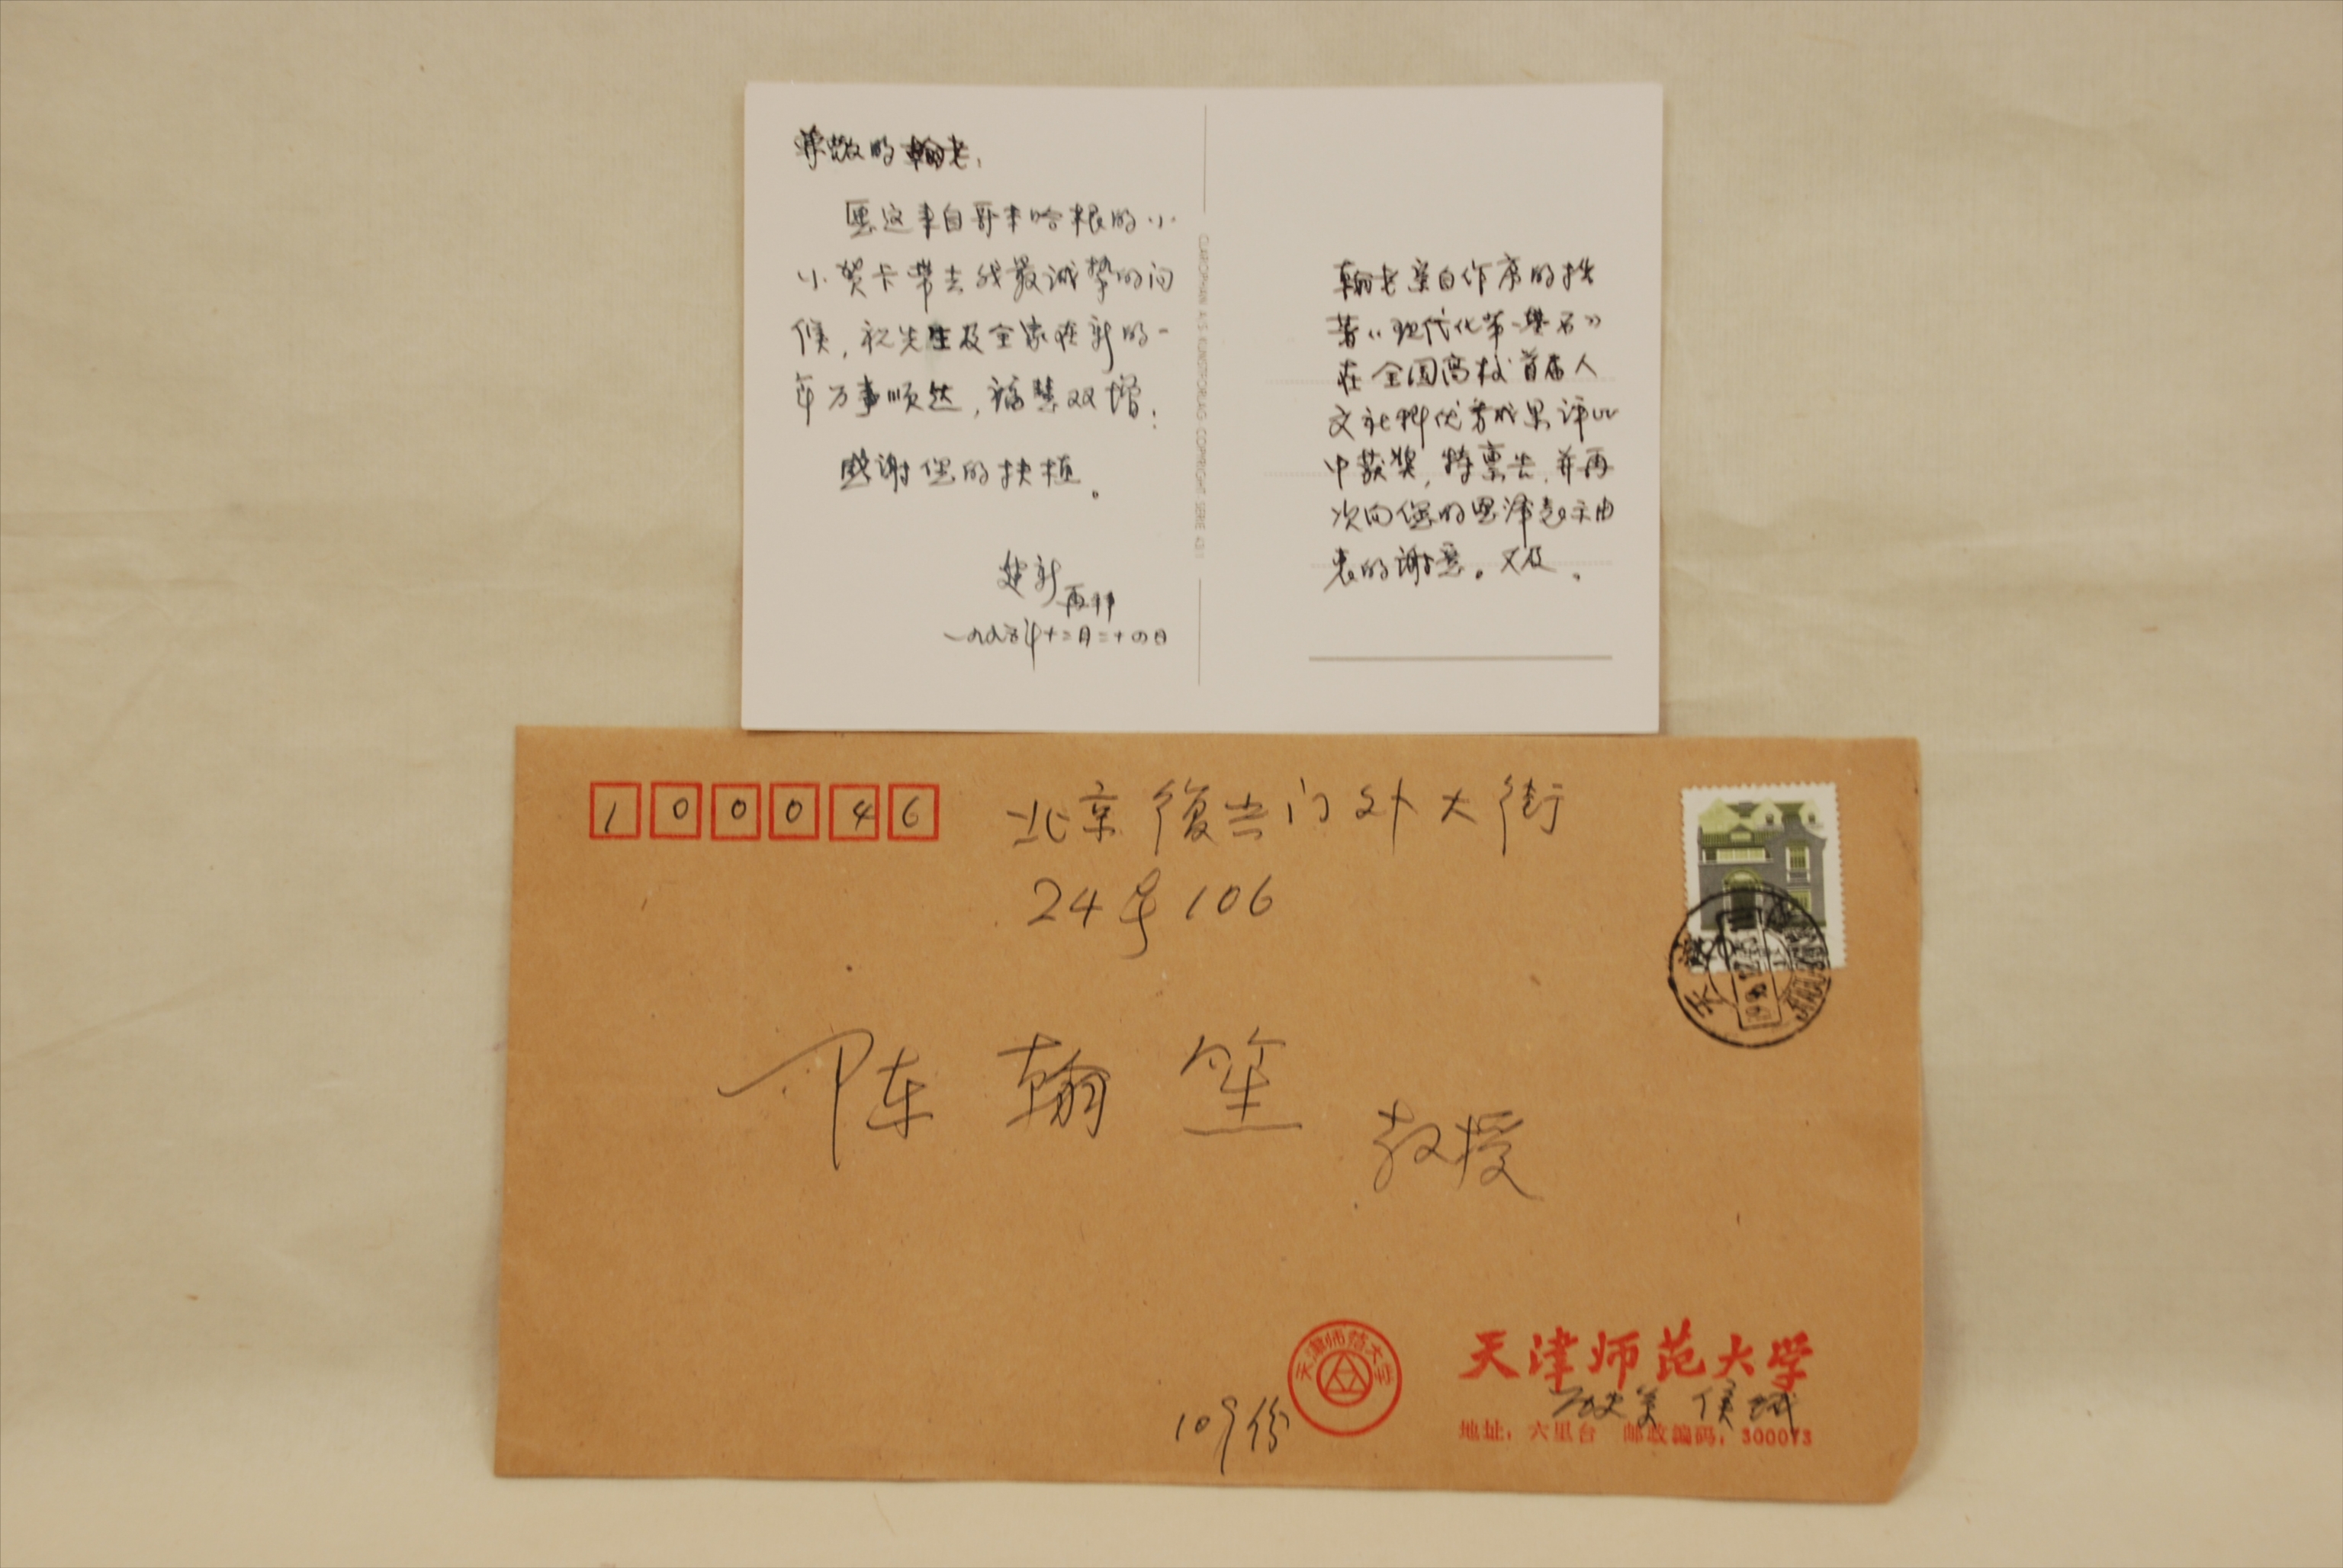 尊敬的翰老：
愿这来自哥本哈根的小
小贺卡带去我最诚挚的问
候，祝先生及全家在新的一
年万事顺达，福慧双增；
感谢您的扶植。
建新
再拜
一九九五年十二月二十四日
CLAROPHAN A/S KUNSTFORLAG COPYRIGHT SERIE 421
翰老亲自作序的拙
著《现代化第一基石》
在全国高校首届人
文社科优秀成果评比
中获奖，特禀告，并再
次向您的恩泽表示由
衷的谢意。又及。
100046
北京復兴门外大街
24号106
陈翰笙
教授
天津
天津师范大学
天津师范大学
历史系 侯 
地址：六里台 邮政编码：300073
109份